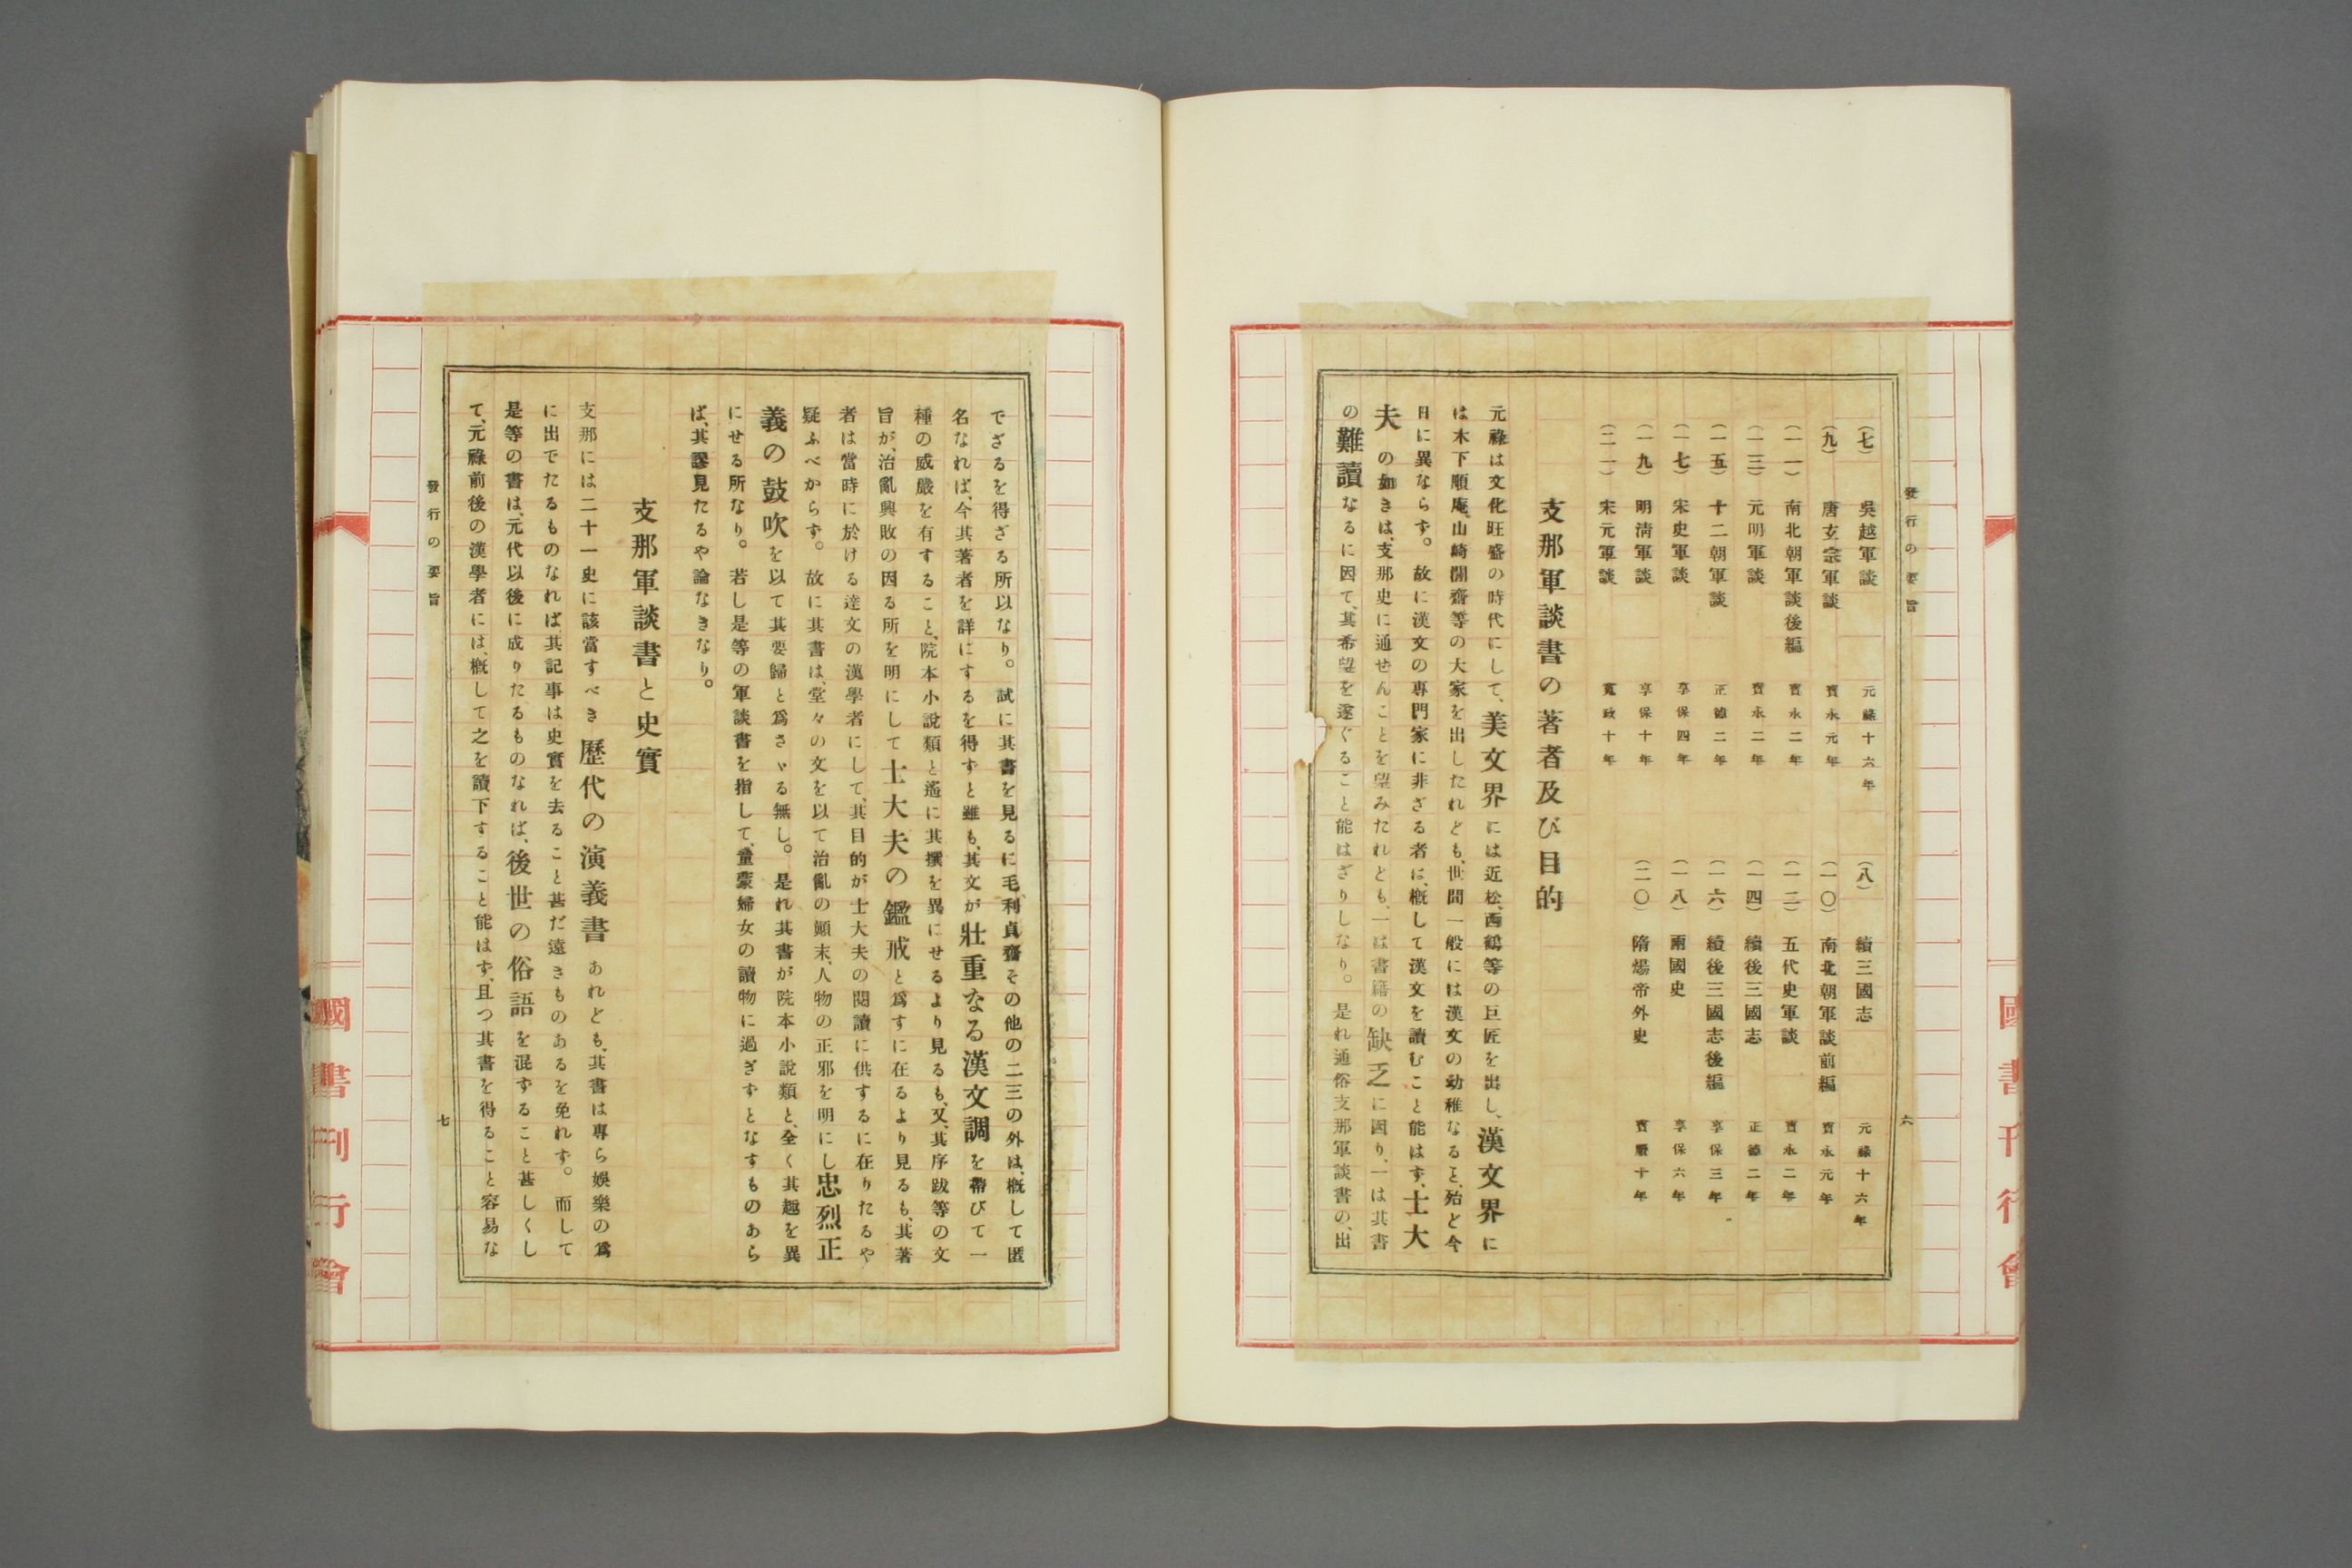 發行の要旨
六
（七）　吳越軍談　元祿十六年　（八）　續三國志　元祿十六年
（九）　唐玄宗軍談　寶永元年　（一〇）　南北朝軍談前編　寶永元年
（一一）　南北朝軍談後編　寶永二年　（一二）　五代史軍談　寶永二年
（一三）　元明軍談　寶永二年　（一四）　續後三國志　正德二年
（一五）　十二朝軍談　正德二年　（一六）　續後三國志後編　享保三年
（一七）　宋史軍談　享保四年　（一八）　兩國史　享保六年
（一九）　明淸軍談　享保十年　（二〇）　隋煬帝外史　寶曆十年
（二一）　宋元軍談　寬政十年
支那軍談書の著者及び目的
元祿は文化旺盛の時代にして、美文界には近松、西鶴等の巨匠を出し、漢文界に
は木下順庵、山崎闇齋等の大家を出したれども、世間一般には漢文の幼稚なること、殆ど今
日に異ならず。故に漢文の專門家に非ざる者は、槪して漢文を讀むこと能はず、士大
夫の如きは、支那史に通せんことを望みたれども、一は書籍の缺乏に因り、一は其書
の難讀なるに因て、其希望を遂ぐること能はざりしなり。是れ通俗支那軍談書の、出
國書刊行會
でざるを得ざる所以なり。試に其書を見るに毛利貞齋その他の二三の外は、槪して匿
名なれば、今其著者を詳にするを得ずと雖も、其文が壯重なる漢文調を帶びて一
種の威嚴を有すること、院本小說類と遙に其撰を異にせるより見るも、又、其序跋等の文
旨が、治亂興敗の因る所を明にして士大夫の鑑戒と爲すに在るより見るも、其著
者は當時に於ける達文の漢學者にして、其目的が士大夫の閱讀に供するに在りたるや
疑ふべからず。故に其書は、堂々の文を以て治亂の顚末、人物の正邪を明にし忠烈正
義の鼓吹を以て其要歸と爲さゞる無し。是れ其書が院本小說類と、全く其趣を異
にせる所なり。若し是等の軍談書を指して、童蒙婦女の讀物に過ぎずとなすものあら
ば、其謬見たるや論なきなり。
支那軍談書と史實
支那には二十一史に該當すべき歷代の演義書あれども、其書は專ら娛樂の爲
に出でたるものなれば其記事は史實を去ること甚だ遠きものあるを免れず。而して
是等の書は、元代以後に成りたるものなれば、後世の俗語を混ずること甚しくし
て、元祿前後の漢學者には、槪して之を讀下すること能はず、且つ其書を得ること容易な
發行の要旨
七
國書刊行會